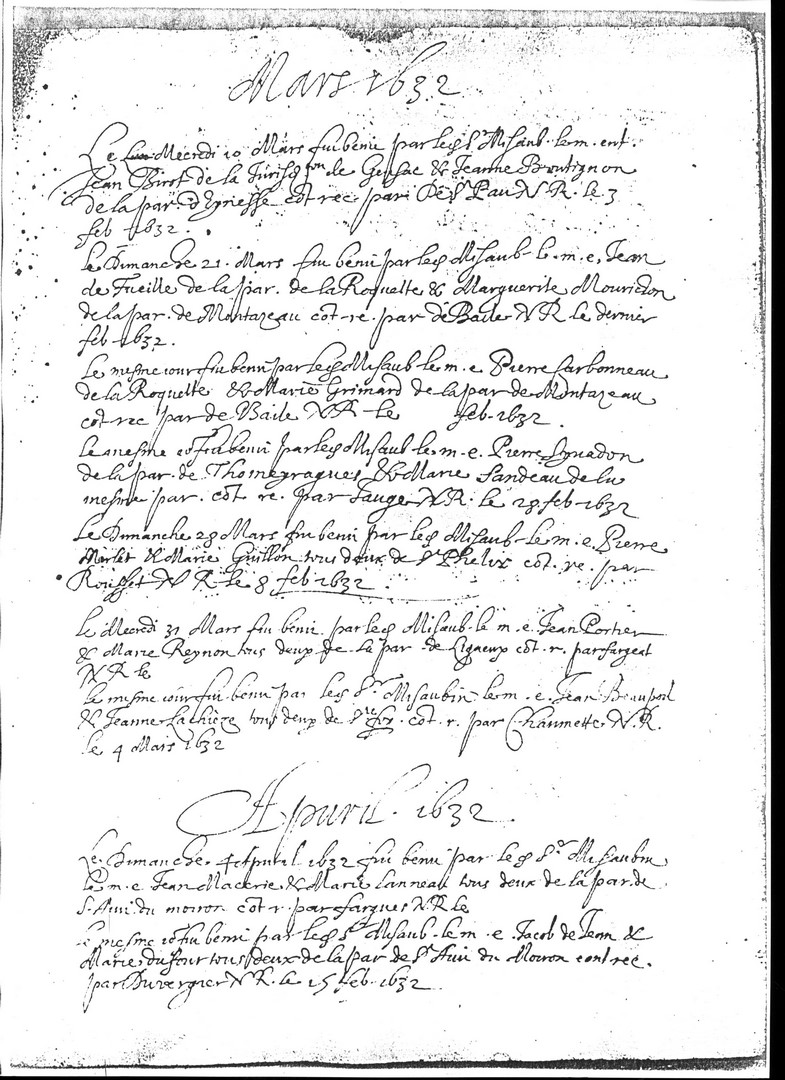 Mars 1632
Le Mecredi 10 Mars fut beni par led Sr Misaub. le m. ent.
Jean Birot de la Jurisdon de Gensac & Jeanne Boutignon
de la par. d'Eynesse cot rec par De St Pau N R. le 3
feb 1632.
Le Dimanche 21 Mars fut beni par led Misaub. le. m. e. Jean
de Fueille de la par. de la Roquette & Marguerite Mouridon
de la par. de Montazeau cot. re. par de Baile N R le dernier
feb 1632.
Le mesme jour fut beni par led Misaub le m. e. Pierre Carbonneau
de la Roquette & Marie Grimard de la par de Montazeau
cot rec par de Baile N R le feb. 1632.
Le mesme jo fut beni par led Misaub le m. e. Pierre
de la par. de Thomeyragues & Marie Landeau de la
mesme par. cot. re. par Sauge N R. le 28 feb 1632
Le Dimanche 28 Mars fut beni par led Misaub. le m. e. Pierre
Merlet & Marie Guillon tous deux de St Phelix cot. re. par
Rousset N R le 8 feb 1632.
Le Mecredi 31 Mars fut beni par led Misaub. le m. e. Jean Portier
& Marie Reynon tous deux de la par. de Ligueux cot. r. par
N R le
Le mesme jour fut beni par led Sr Misaubin le m. e. Jean Beaupoil
& Jeanne Lachieze tous deux de Ste foy. cot. r. par Chaumette N. R.
le 4 Mars 1632
Apvril. 1632.
Le Dimanche 4e Apvril 1632 fut beni par led Sr Misaubin
le m. e. Jean Macerie & Marie Lanneau tous deux de la par de
S. Avui du moiron cot r. par fargues N R le
Le mesme jo fut beni par led Sr Misaub. le m. e. Jacob de Jean &
Marie du four tous deux de la par de St Avui du Moiron cont rec.
par Duvergier N R. le 15 feb. 1632.